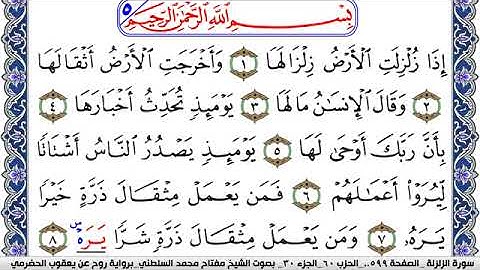 بِسْمِ اللَّهِ الرَّحْمَٰنِ الرَّحِيمِ ٥
إِذَا زُلْزِلَتِ الْأَرْضُ زِلْزَالَهَا ١ وَأَخْرَجَتِ الْأَرْضُ أَثْقَالَهَا
٢ وَقَالَ الْإِنسَانُ مَا لَهَا ٣ يَوْمَئِذٍ تُحَدِّثُ أَخْبَارَهَا ٤
بِأَنَّ رَبَّكَ أَوْحَىٰ لَهَا ٥ يَوْمَئِذٍ يَصْدُرُ النَّاسُ أَشْتَاتًا
لِّيُرَوْا أَعْمَالَهُمْ ٦ فَمَن يَعْمَلْ مِثْقَالَ ذَرَّةٍ خَيْرًا
يَرَهُ ٧ وَمَن يَعْمَلْ مِثْقَالَ ذَرَّةٍ شَرًّا يَرَهُ ٨
سورة الزلزلة _ الصفحة ٥٩٩ _ الحزب ٦٠ _ الجزء ٣٠ _ بصوت الشيخ مفتاح محمد السلطني _ برواية روح عن يعقوب الحضرمي